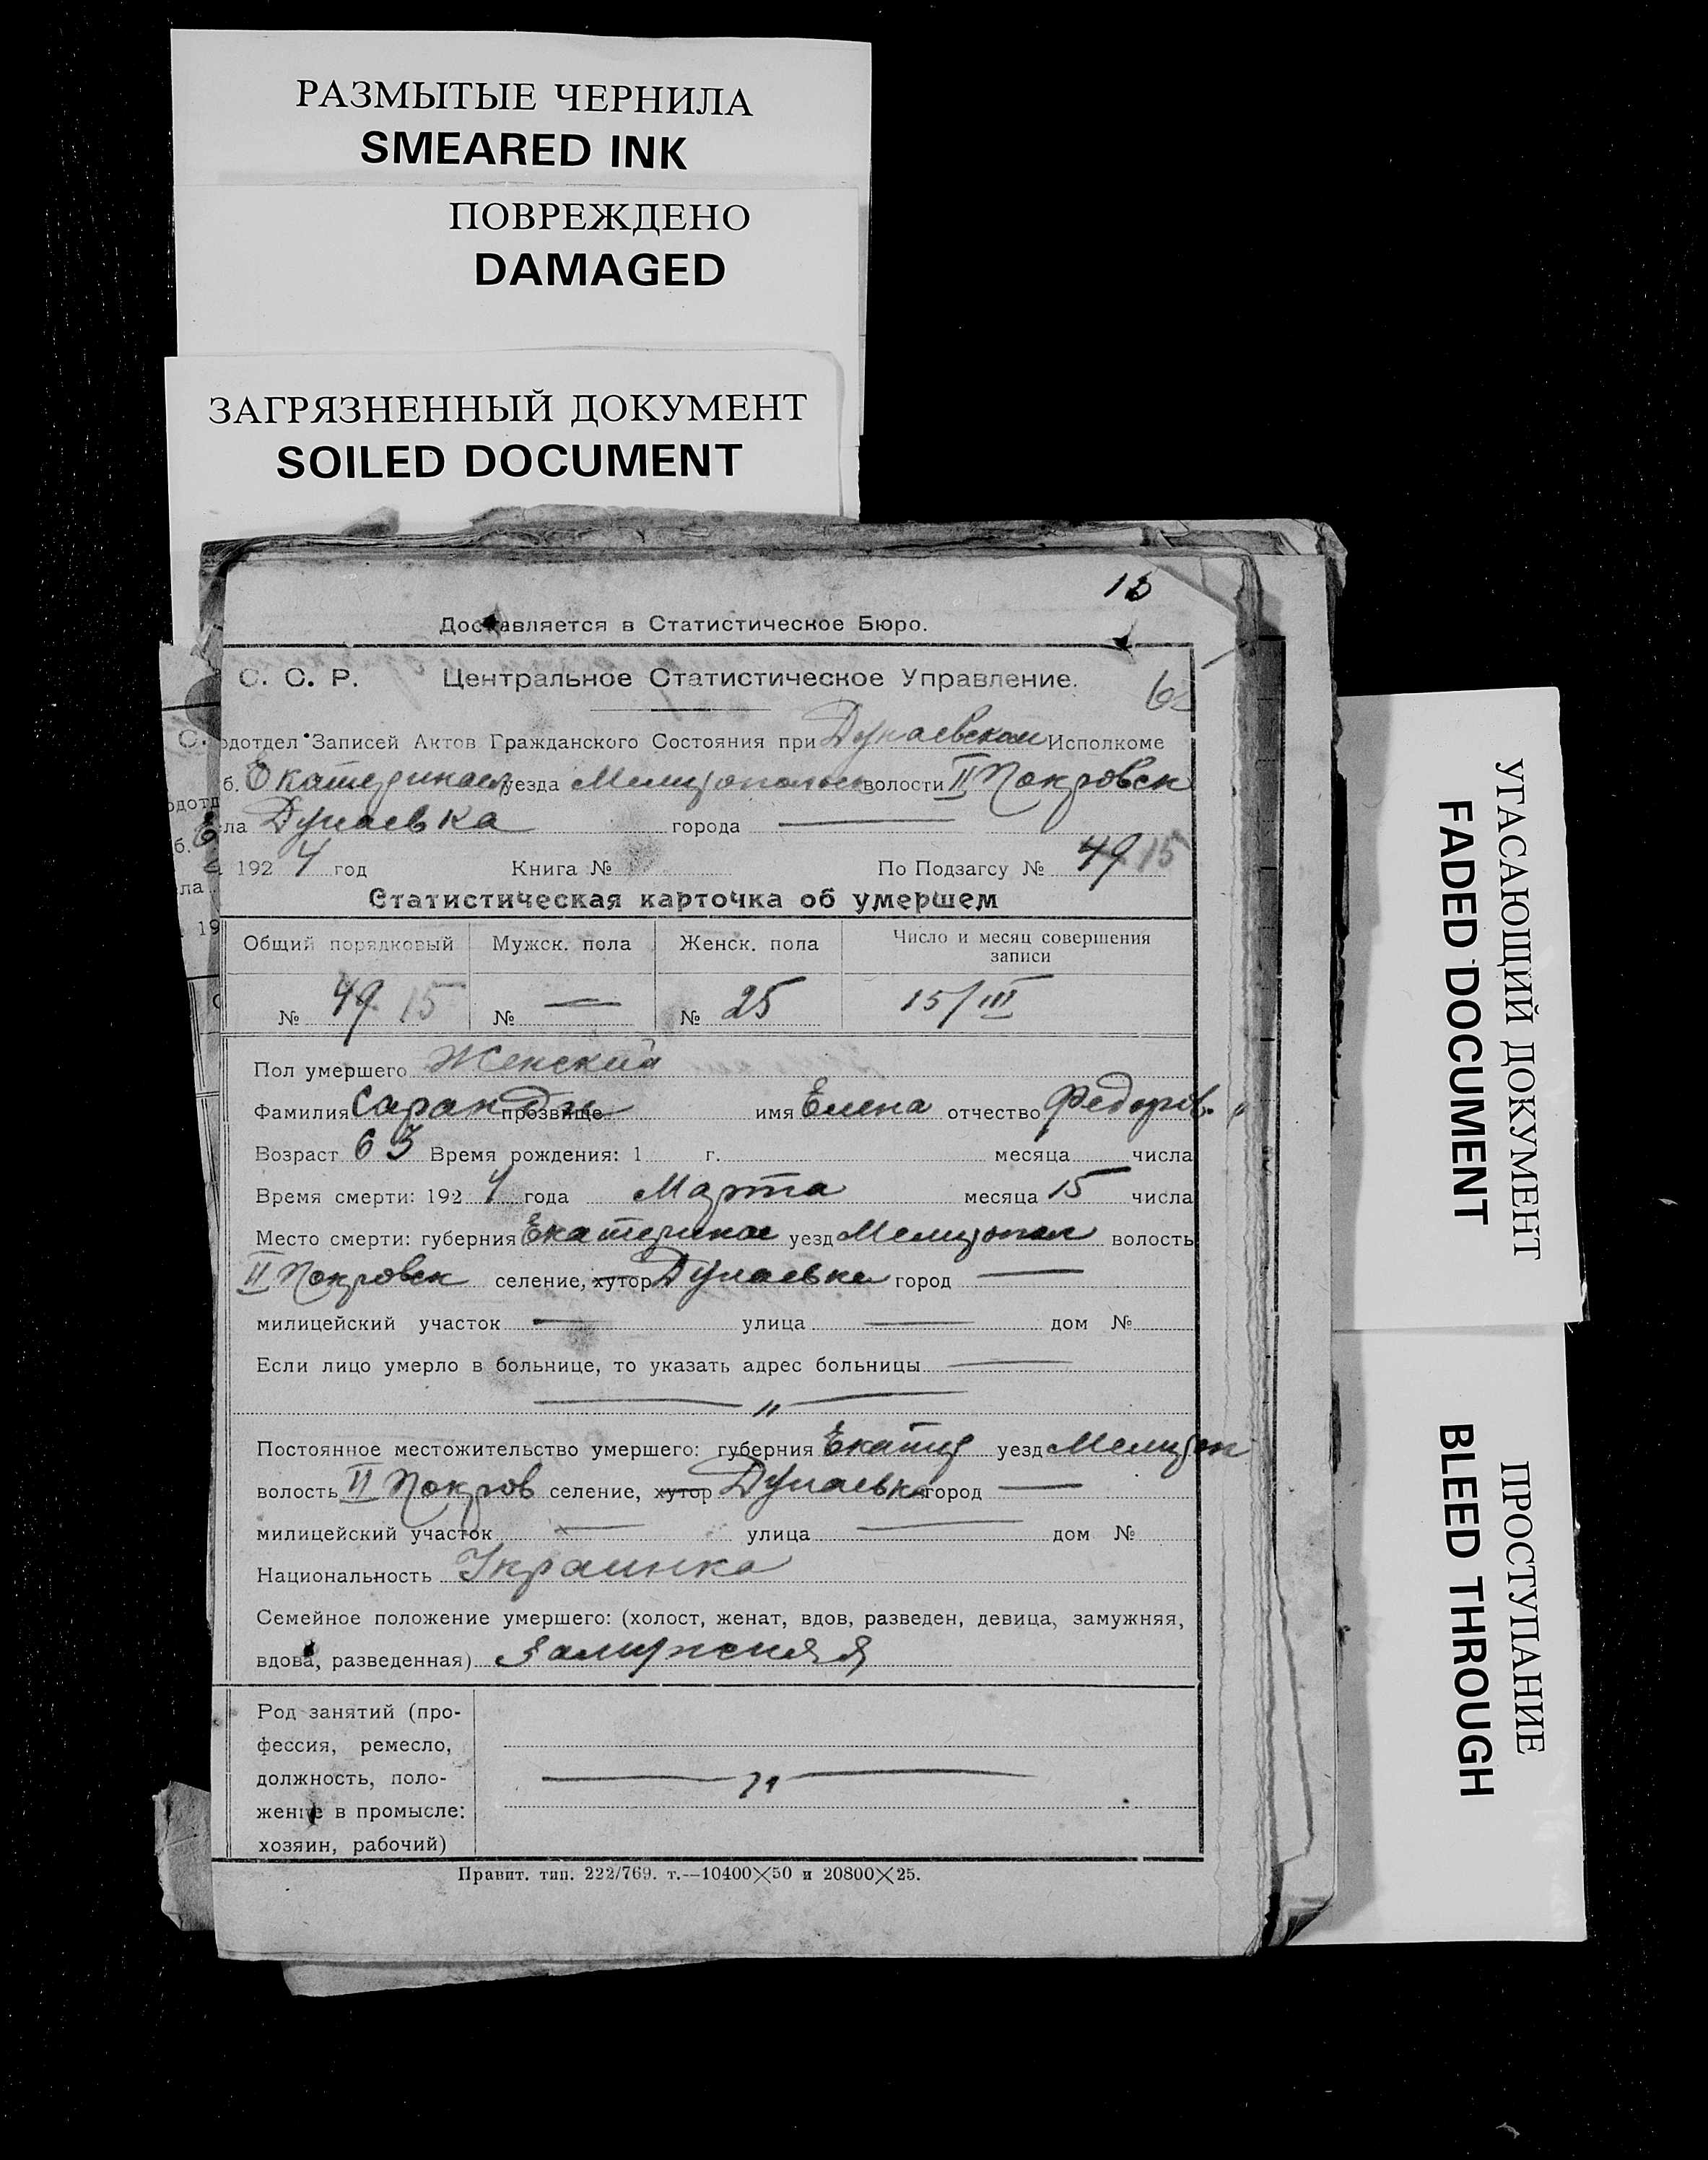 РАЗМЫТЫЕ ЧЕРНИЛА
SMEARED INK
ПОВРЕЖДЕНО
DAMAGED
ЗАГРЯЗНЕННЫЙ ДОКУМЕНТ
SOILED DOCUMENT
Доставляется в Статистическое Бюро.
С. С. Р. Центральное Статистическое Управление.
одотдел Записей Актов Гражданского Состояния при Дунаевском Исполкоме
б. Екатеринос уезда Мелитопольск волости II Покровск
ла Дунаевка города —
1924 год Книга № По Подзагсу № 49 15
Статистическая карточка об умершем
Общий порядковый Мужск. пола Женск. пола Число и месяц совершения записи
№ 49 15 № — № 25 15/III
Пол умершего Женский
Фамилия Саранди прозвище имя Елена отчество Федоров.
Возраст 63 Время рождения: 1 г. месяца числа
Время смерти: 1924 года Марта месяца 15 числа
Место смерти: губерния Екатеринос уезд Мелитопол волость
II Покровск селение, хутор Дунаевка город —
милицейский участок — улица — дом №
Если лицо умерло в больнице, то указать адрес больницы —
— „ —
Постоянное местожительство умершего: губерния Екатер уезд Мелитоп
волость II Покров селение, хутор Дунаевка город —
милицейский участок — улица — дом №
Национальность Украинка
Семейное положение умершего: (холост, женат, вдов, разведен, девица, замужняя,
вдова, разведенная) Замужняя
Род занятий (про-
фессия, ремесло,
должность, поло- — „ —
жение в промысле:
хозяин, рабочий)
Правит. тип. 222/769. т.—10400×50 и 20800×25.
УГАСАЮЩИЙ ДОКУМЕНТ
FADED DOCUMENT
ПРОСТУПАНИЕ
BLEED THROUGH